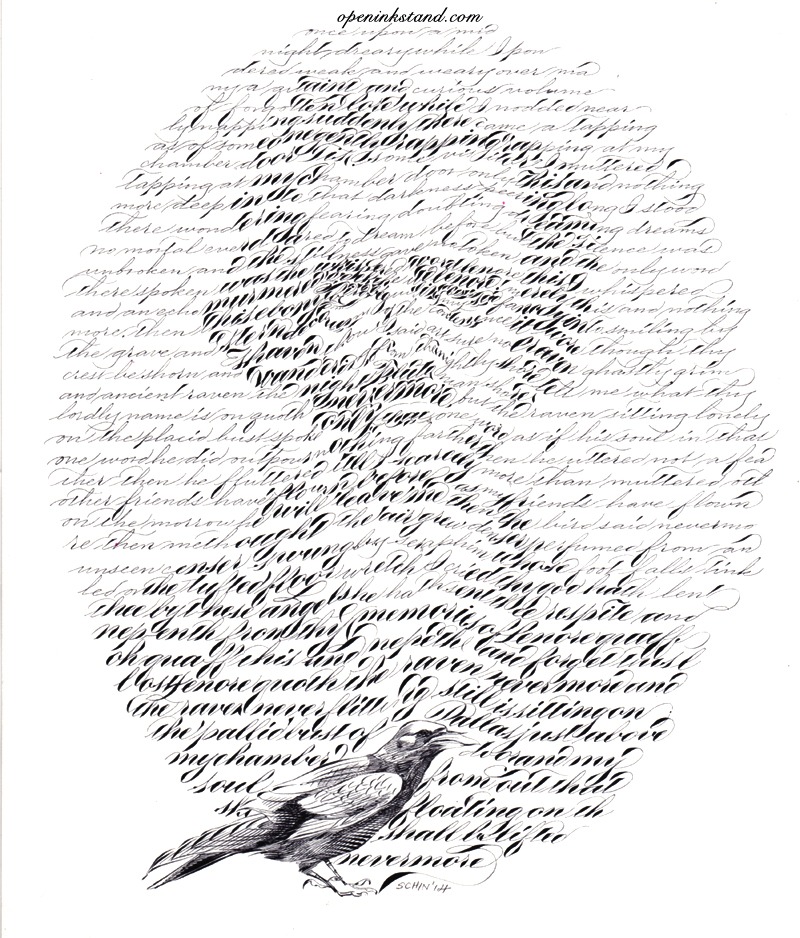 openinkstand.com
once upon a mid
night dreary while I pon
dered weak and weary over ma
ny a quaint and curious volume
of forgotten lore while I nodded near
ly napping suddenly there came a tapping
as of some one gently rapping rapping at my
chamber door tis some vis muttered
tapping at my chamber door only this and nothing
more deep into that darkness peering long I stood
there wondering fearing doubting dreaming dreams
no mortal ever dared to dream before but the silence was
unbroken and the gave token and the only word
there spoken was the word lenore this I whispered
and an echo murmured merely this and nothing
more then this ebony smiling by
the grave and stern you said art sure no though thy
crest be shorn and shaven ghastly grim
and ancient raven wandering nightly shore tell me what thy
lordly name is on the night's quoth the raven sitting lonely
on the placid bust spoke only that one word as if his soul in that
one word he did outpour nothing farther then he uttered not a fea
ther then he fluttered till I scarcely more than muttered oth
other friends have flown before friends have flown
on the morrow he will leave me then the bird said nevermo
re then methought the air grew denser perfumed from an
unseen censer swung by seraphim whose foot falls tink
led on the tufted floor wretch I cried thy god hath lent
thee by these angels he hath sent thee respite and
nepenth from thy memories of Lenore quaff
oh quaff this kind nepenth and forget this l
ost Lenore quoth the raven nevermore and
the raven never flitting still is sitting on
the pallid bust of Pallas just above
my chamber door and my
soul from out that
sh floating on th
shall be lifte
nevermore
SCHIN '14